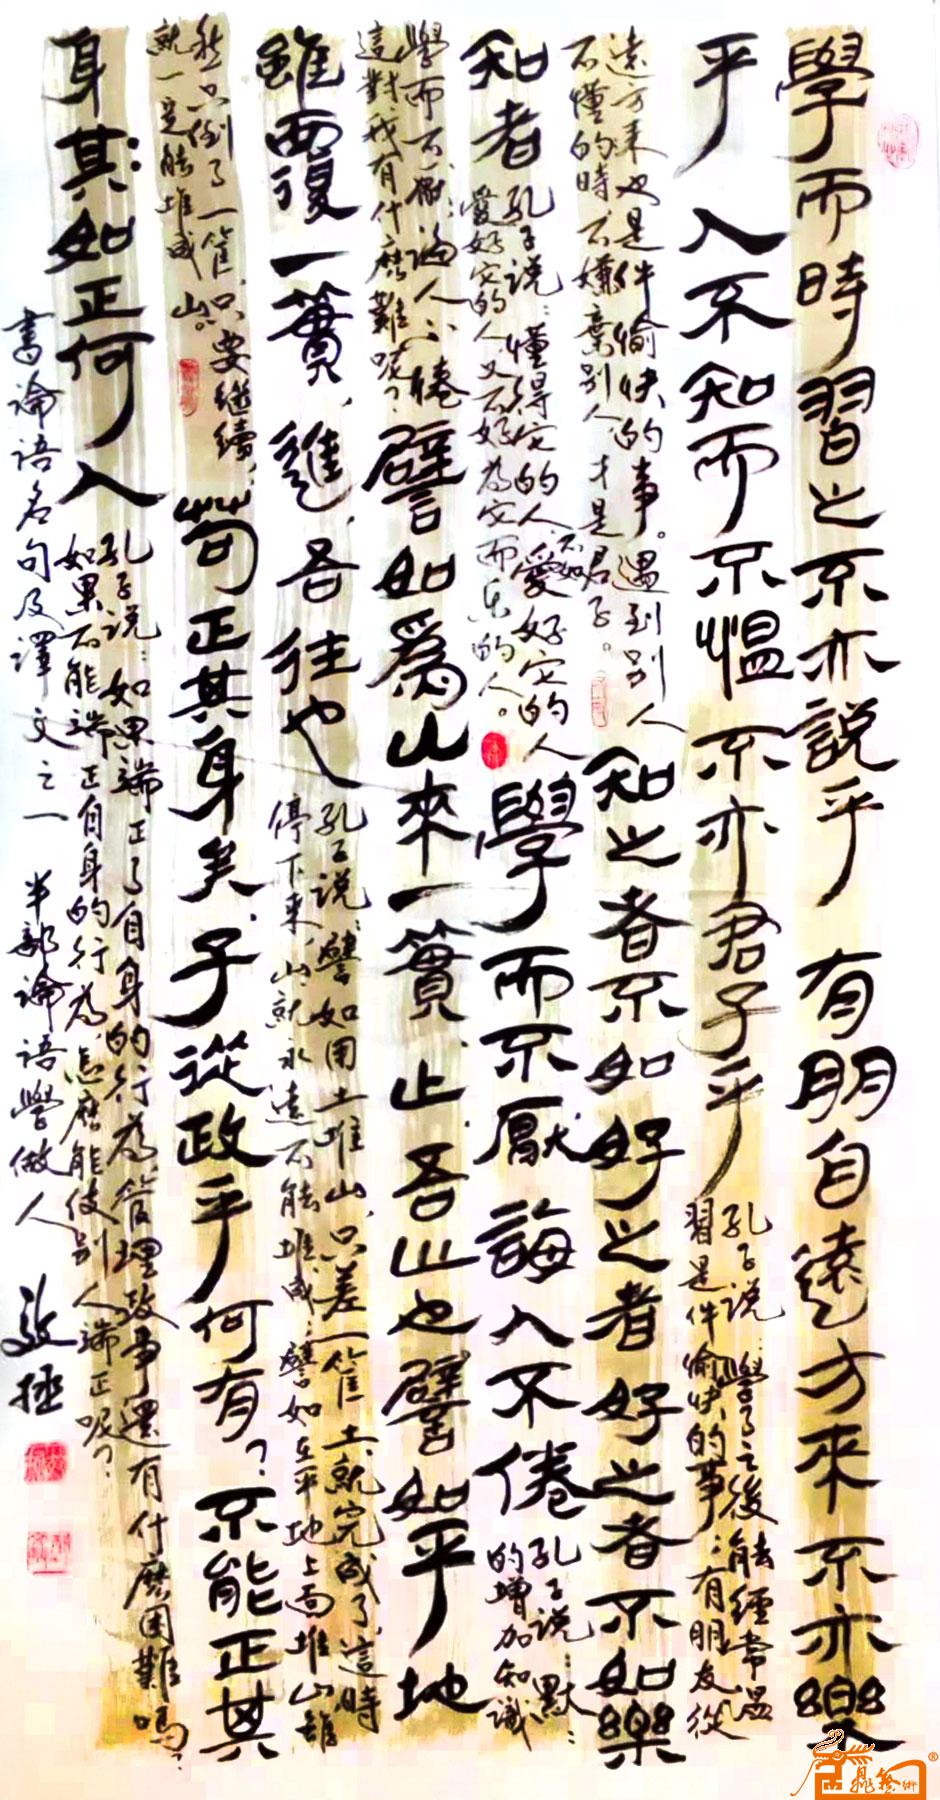 學而時習之不亦説乎 有朋自遠方來不亦樂
乎 人不知而不愠 不亦君子乎
孔子説:學了之後能經常温
習是件愉快的事;有朋友從
遠方來也是件愉快的事。遇到别人
不懂的時不嫌棄别人才是君子。
知之者不如好之者好之者不如樂
知者
孔子説:懂得它的人不如愛好它的人
愛好它的人又不好為它而樂的人。
學而不厭 誨人不倦
孔子説:默:
的增加知識
學而不厭;誨人不倦
這對我有什麽難呢?
譬如爲山來一簣、止、吾止也譬如平地
雖覆一簣、進、吾往也
孔子説:譬如用土堆山,只差一筐土、就完成了、這時
停下來,山就永遠不能堆成;譬如在平地上而堆山雖
然只倒了一筐,只要繼續,
就一定能堆成山。
苟正其身矣、子從政乎何有?不能正其
身其:如正何人
孔子説:如果端正了自身的行為、管理政事還有什麽困難嗎?
如果不能端正自身的行為、怎麽能使别人端正呢?
書論語名句及譯文之一 半部論語學做人 敬